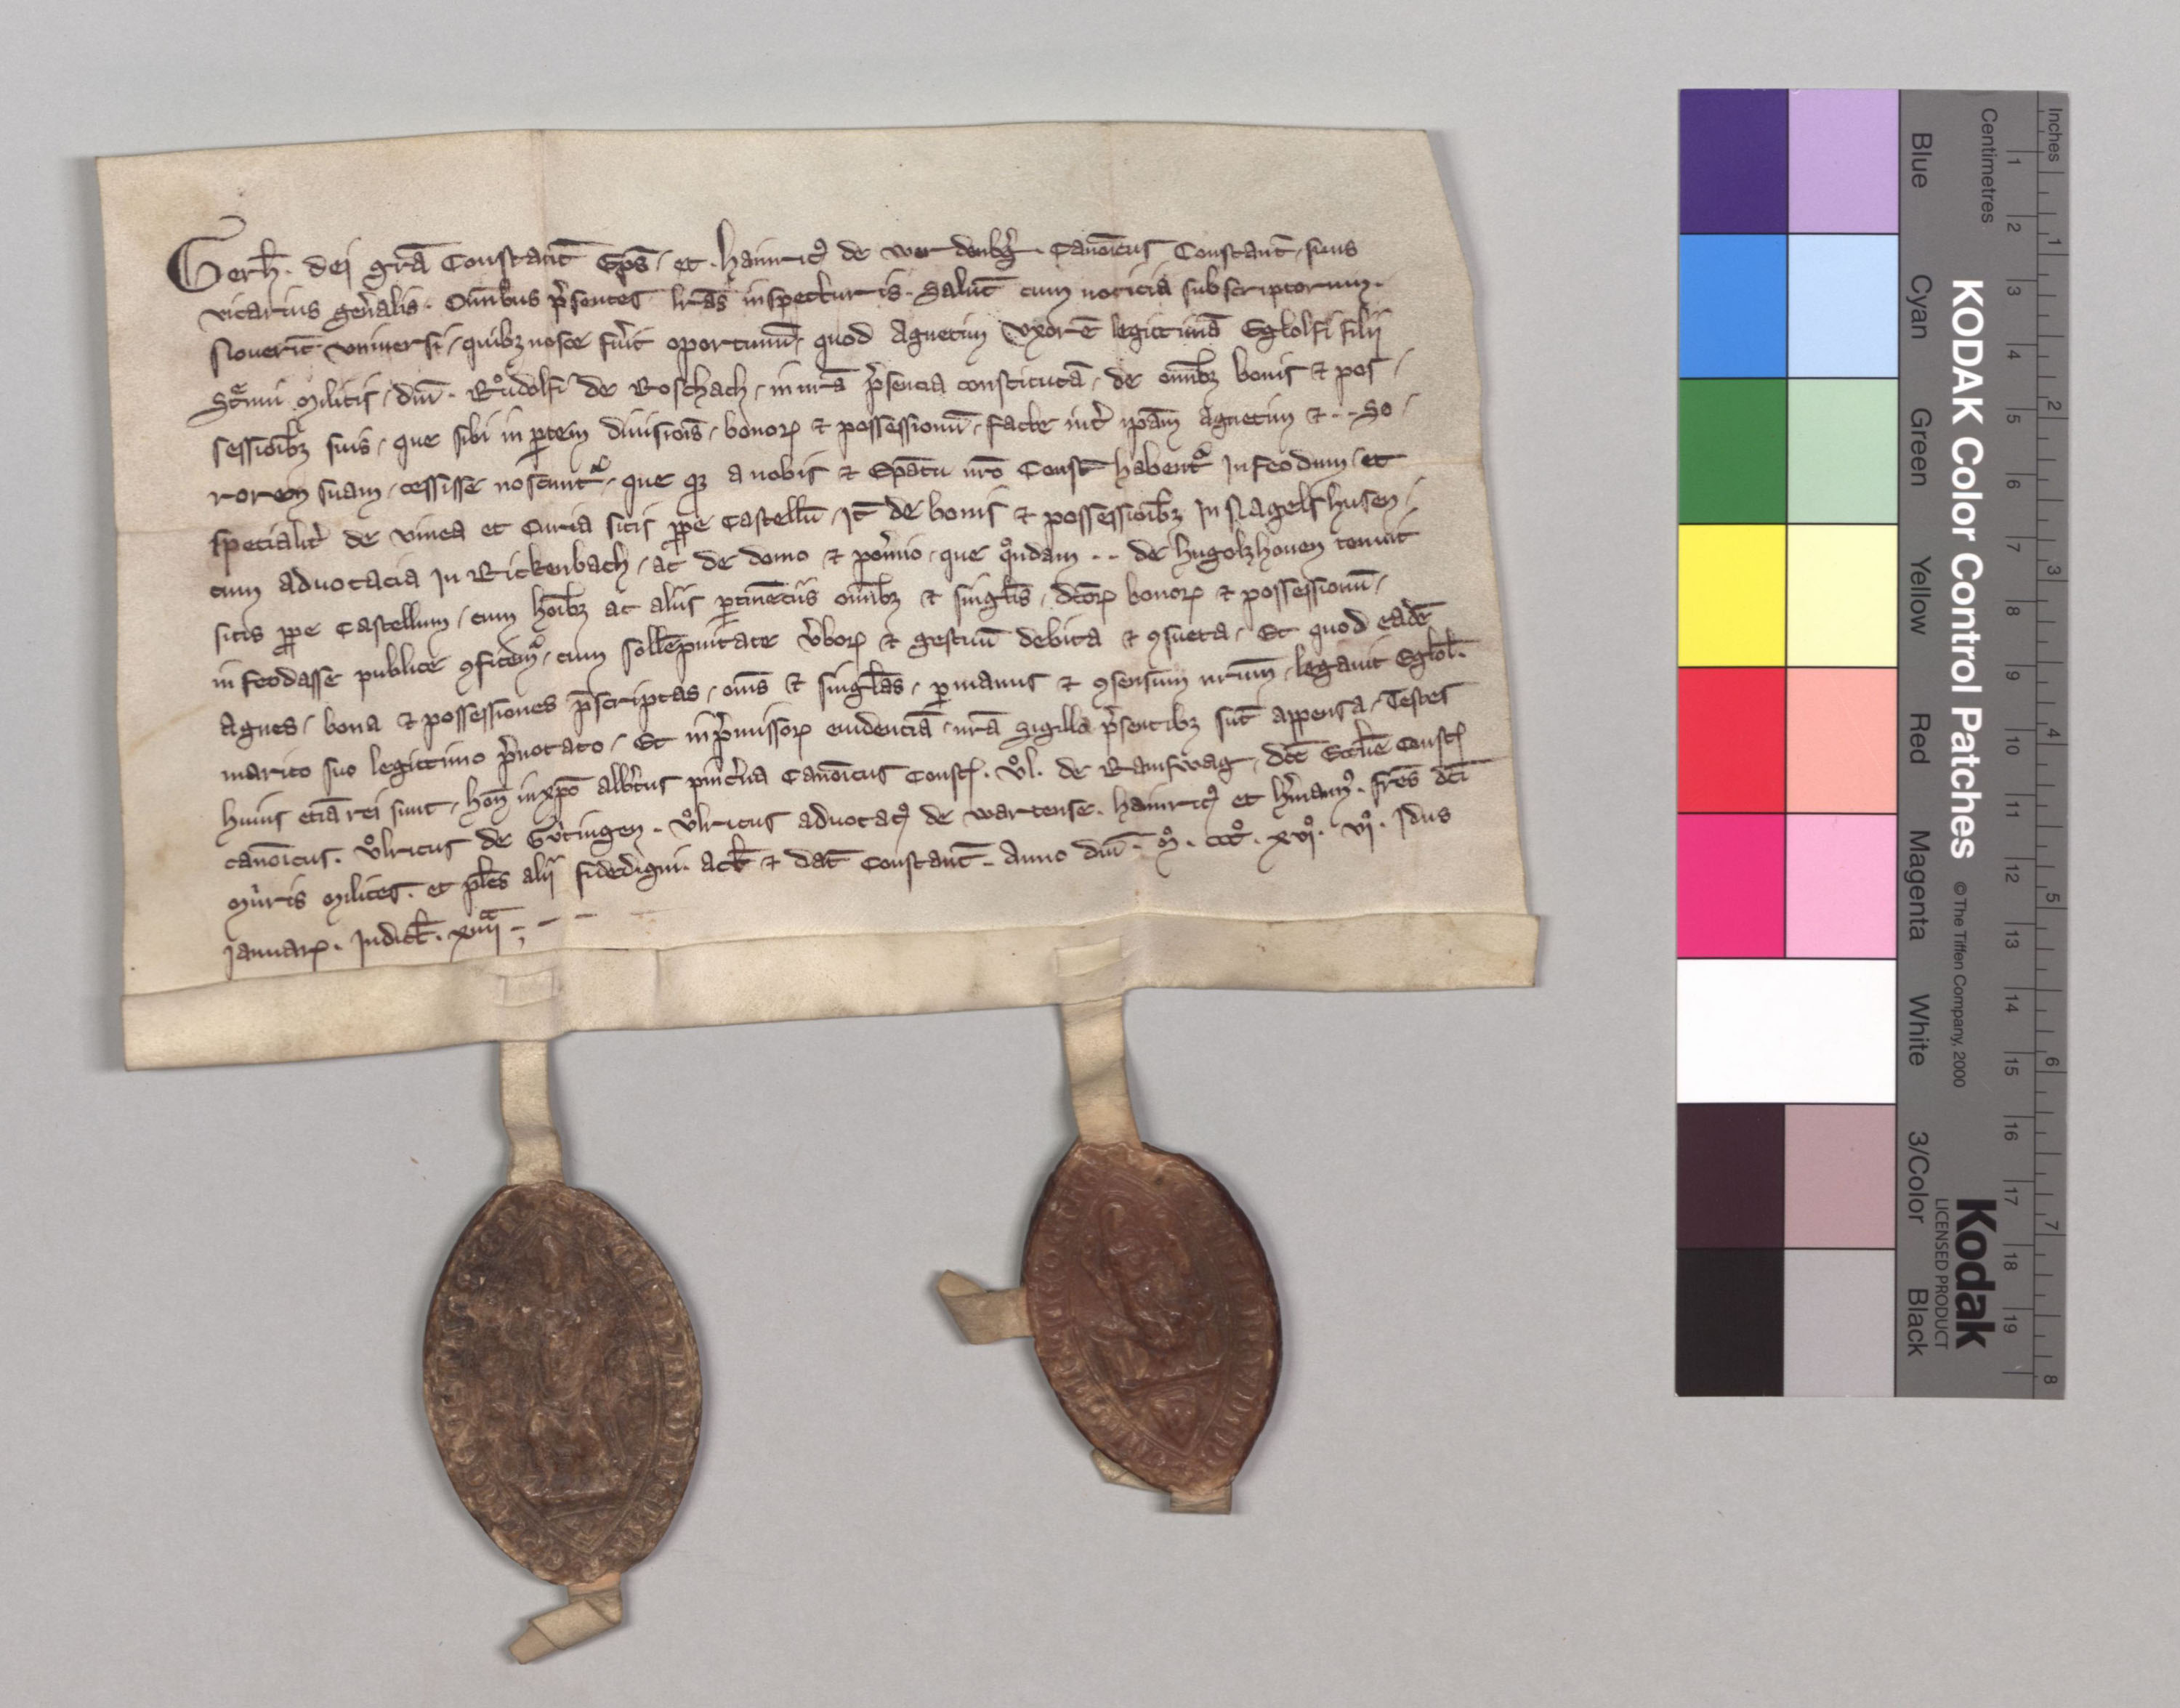 Gerh̄. dei gr̄a Constant̄ Ep̄s, et. hainricꝰ de werdenbg̾. Canōicus Constant̄, suus
vicarius gen̾alis. Om̄ibus p̾sentes lr̄as inspecturis. Salut̄ cum noticia subscriptorum.
Nouerīt vniuersi, quibꝫ nosce fu̾it oportunū, quod Agnetim Vxorē legittimā Eglolfi filij
militis, dn̄i. Růdolfi de Roschach, in nr̄a p̾sencia constitutā, de om̄ibꝫ bonis ⁊ pos,
sessioībꝫ suis, que sibi in ꝑtem diuisiōis, bonoꝝ ⁊ possessionū, facte int̾ ip̄am Agnetim ⁊ .. So,
rorem suam, cessisse noscunt᷑, que a nobis ⁊ Ep̄atu nr̄o Const̄ habent᷑ In feodum, et
specialit̾ de vinea et Curia sitis ꝓpe Castellū, It̄ de bonis ⁊ possessioībꝫ In Nagelshusen,
cum aduocacia In Rickenbach, ac de domo ⁊ pom̾io, que qͦndam .. de hugolzhouen tenuit
sitis ꝓpe Castellum, cum hoībꝫ ac aliis ꝑtinēciis om̄ibꝫ ⁊ singlīs, dc̄oꝝ bonoꝝ ⁊ possessionū,
in feodasse publice ꝯfitem᷑, cum sollēpnitate v̾boꝝ ⁊ gestuū debita ⁊ ꝯsueta, Et quod eadē
Agnes, bona ⁊ possessiones p̄scriptas, om̄s ⁊ singl̄as, ꝑ manus ⁊ ꝯsensum nr̄um, legauit Eglol̄.
marito suo legittimo p̾notato, Et in p̾missoꝝ euidenciā, nr̄a Sigilla p̾sentibꝫ sūt appensa, Testes
huius eciā rei sunt, hon̄ in xp̄o alb̾tus pinc̾na Canōicus Const̄. Vͦl. de Ramswag, dc̄e Eccl̄ie Const̄
canōicus. Vͦlricus de Gu̾tingen. Vͦlricus aduocatꝰ de wartense. hainricꝰ et h̾manꝰ. fr̄es dc̄i
milites. et pl̄es alij fidedigni. act̄ ⁊ dat̄ Constant̄. Anno dn̄i. mͦ. cccͦ. xviͦ. viͦ. Idus
Januaꝝ. Indict̄. xiiijͣ
Inches
Centimetres
1 2 3 4 5 6 7 8 9 10 11 12 13 14 15 16 17 18 19
1 2 3 4 5 6 7 8
Blue
Cyan
Green
Yellow
Red
Magenta
White
3/Color
Black
KODAK Color Control Patches
© The Tiffen Company, 2000
Kodak
LICENSED PRODUCT